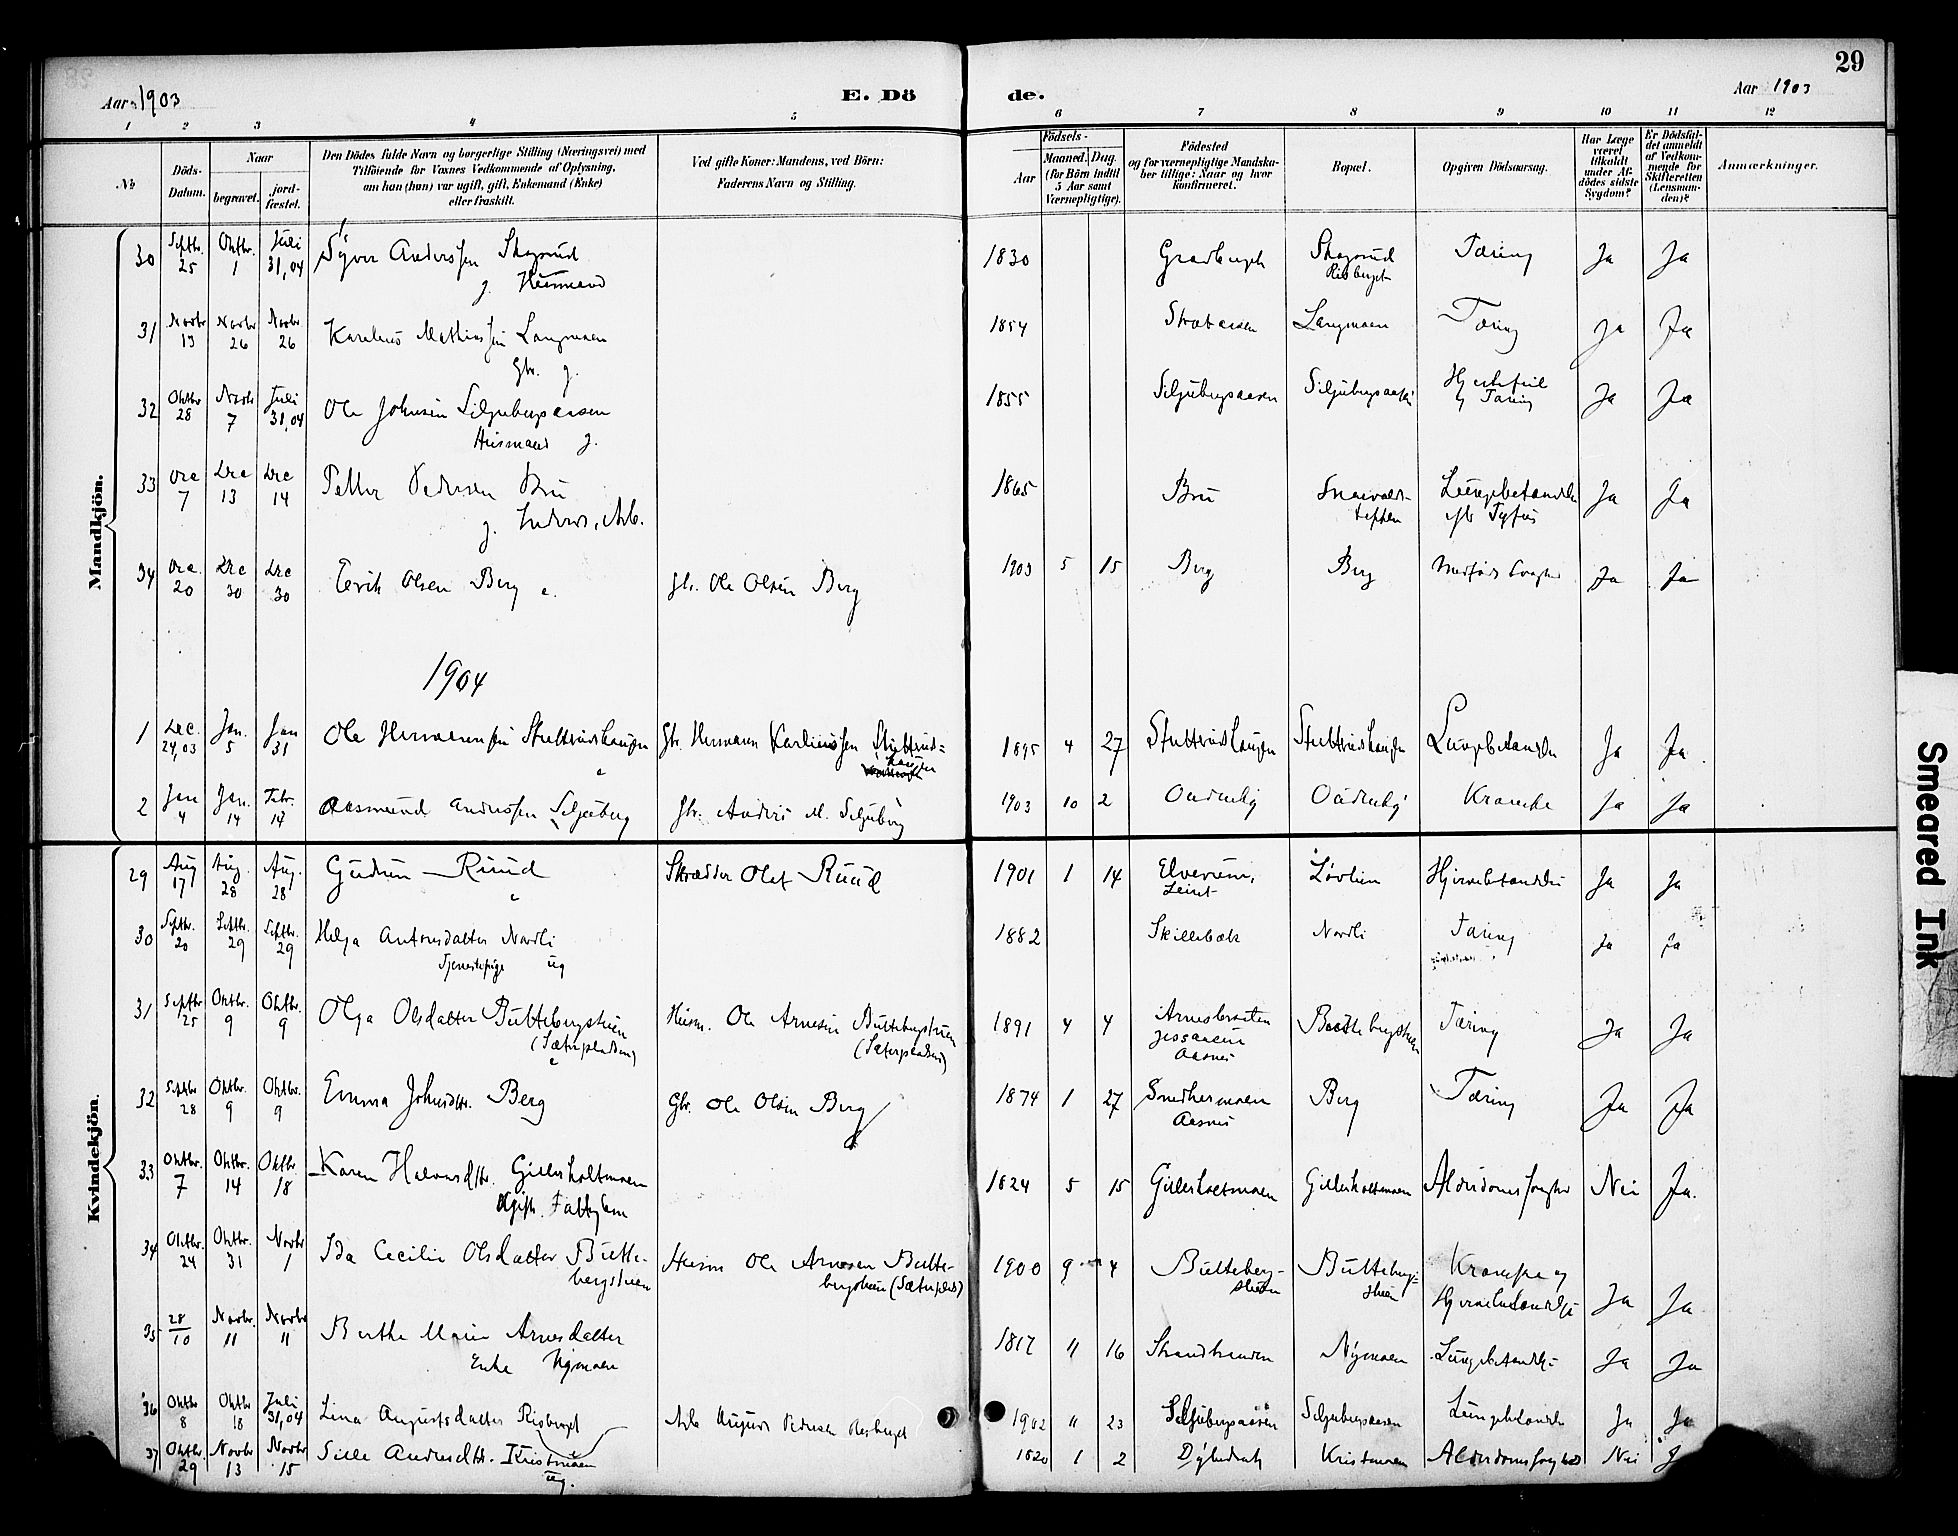 29
Aar 1903 E. Dö de. Aar 1903
1 2 3 4 5 6 7 8 9 10 11 12
No
Döds-Datum.
Naar
begravet.
jord-fæstet.
Den Dödes fulde Navn og borgerlige Stilling (Næringsvei) med
Tilföiende for Voxnes Vedkommende af Oplysning,
om han (hun) var ugift, gift, Enkemand (Enke)
eller fraskilt.
Ved gifte Koner: Mandens, ved Börn:
Faderens Navn og Stilling.
Födsels-
Aar
Maaned. Dag.
(for Börn indtil
5 Aar samt
Værnepligtige).
Födested
og for værnepligtige Mandska-
ber tillige: Naar og hvor
konfirmeret.
Bopæl.
Opgiven Dödsaarsag.
Har Læge
været
tilkaldt
under Af-
dödes sidste
Sygdom?
Er Dödsfal-
det anmeldt
af Vedkom-
mende for
Skifteretten
(Lensman-
den)?
Anmærkninger.
Mandkjön.
30 Septbr. 25 Oktbr. 1 Juli 31,04 Syver Anderssen Skaprud 1830 Skaprud Tæring Ja Ja
g. Husmand Risberget
31 Novbr 13 Novbr 26 Novbr 26 Karelius Mathiassen Langmoen 1854 Langmoen Tæring Ja Ja
Gbr. g.
32 Oktbr 28 Novbr 7 Juli 31,04 Ole Johnsen Siljubergsaasen 1855 Siljubergsaasen Siljubergsaasen Hjertefeil Ja Ja
Husmand g. og Tæring
33 Dec 7 Dec 13 Dec 14 Petter Pedersen Bru 1865 Bru Lungebetændelse Ja Ja
g. Inderst, Arb. eft. Tyfus
34 Dec. 20 Dec 30 Dec 30 Eerik Olsen Berg e. Gbr. Ole Olsen Berg 1903 5 15 Berg Berg Medfødt Svaghed Ja Ja
1904
1 Dec. 24,03 Jan. 5 Jan 31 Ole Hermansen Stuttrudshaugen Gbr. Hermann Karlinussen Stuttruds= 1895 4 27 Stuttrudshaugen Stuttrudshaugen Lungebetændelse Ja Ja
e haugen
2 Jan 4 Jan. 14 Febr. 14 Aasmund Anderssen Siljuberg Gbr. Anders M. Siljuberg 1903 10 2 Krampe Ja Ja
Kvindekjön.
29 Aug 17 Aug. 28 Aug. 28 Gudrun Ruud Skrædder Olaf Ruud 1901 1 14 Elverum, Løvlien Hjernebetændelse Ja Ja
e Leiret
30 Septbr. 20 Septbr. 29 Septbr. 29 Helga Antonsdatter Nordli 1882 Skillebæk Nordli Tæring Ja Ja
Tjenestepige ug
31 Septbr 25 Oktbr. 9 Oktbr. 9 Olga Olsdatter Buttebergstuen Husm. Ole Arnesen Buttebergstuen 1891 4 4 Arnesbraaten Buttebergstuen Tæring Ja Ja
(Sæterpladsen) (Sæterpladsen) Aasnes
e
32 Septbr 28 Oktbr. 9 Oktbr. 9 Emma Johnsdtr. Berg Gbr. Ole Olsen Berg 1874 1 27 Berg Tæring Ja Ja
Aasnes
33 Oktbr. 7 Oktbr. 14 Oktbr. 18 Karen Halvorsdtr. Gillersholtmoen 1824 5 15 Gillersholtmoen Gillersholtmoen Alderdomssvaghed Nei Ja.
Ugift. Fattiglem
34 Oktbr. 24 Oktbr. 31 Novbr 1 Ida Cecilie Olsdatter Butte- Husm Ole Arnesen Butte- 1900 9 4 Butteberg- Butteberg= Krampe og
bergstuen bergstuen (Sæterplads) stuen stuen Hjernebetændelse Ja Ja
35 28/10 Novbr. 11 Novbr 11 Berthe Marie Arnesdatter 1817 11 16 Strandbraaten Nymoen Lungebetændelse Ja Ja
Enke Nymoen
36 Oktbr 8 Oktbr 18 Juli 31,04 Lina Augustsdatter Risberget Arb August Pedersen Risberget 1902 11 23 Siljubergsaasen Siljubergsaasen Lungebetændelse Ja Ja
37 Oktbr. 29 Novbr 13 Novbr 15 Sille Andersdtr. Kristmoen 1820 1 2 Kristmoen Alderdomssvaghed Nei
ug.
Smeared Ink